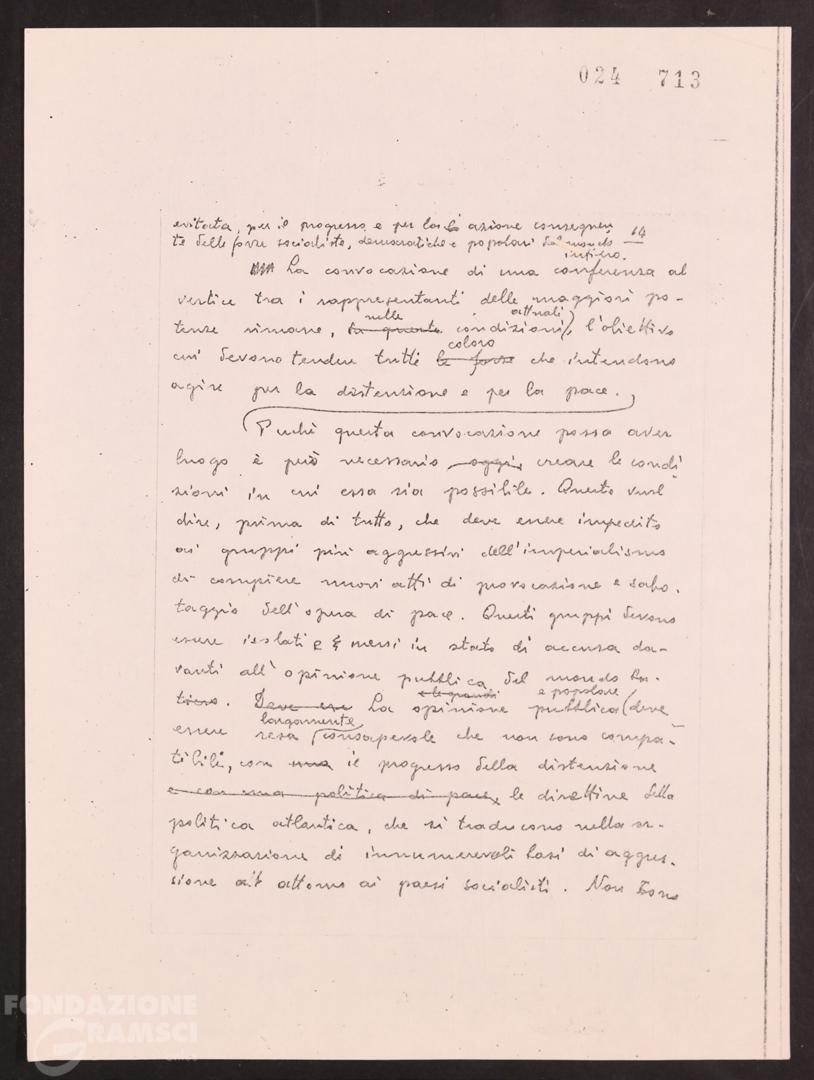 024 713
evitata, per il progresso e per la azione conseguen
te delle forze socialiste, democratiche e popolari del mondo
14
intiero.
La convocazione di una conferenza al
vertice tra i rappresentanti delle maggiori po-
nelle attuali
tenze rimane, in quanto condizioni, l'obiettivo
coloro
cui devono tendere tutti le forze che intendono
agire per la distensione e per la pace.
Perché questa convocazione possa aver
luogo è però necessario oggi creare le condi
zioni in cui essa sia possibile. Questo vuol
dire, prima di tutto, che deve essere impedito
ai gruppi più aggressivi dell'imperialismo
di compiere nuovi atti di provocazione e sabo-
taggio dell'opera di pace. Questi gruppi devono
essere isolati e messi in stato di accusa da-
vanti all'opinione pubblica del mondo in-
e le grandi e popolare
tiero. Deve ess La opinione pubblica deve
largamente
essere resa consapevole che non sono compa-
tibili, con una il progresso della distensione
e con una politica di pace, le direttive della
politica atlantica, che si traducono nella or-
ganizzazione di innumerevoli basi di aggres-
sione att attorno ai paesi socialisti. Non sono
FONDAZIONE
GRAMSCI